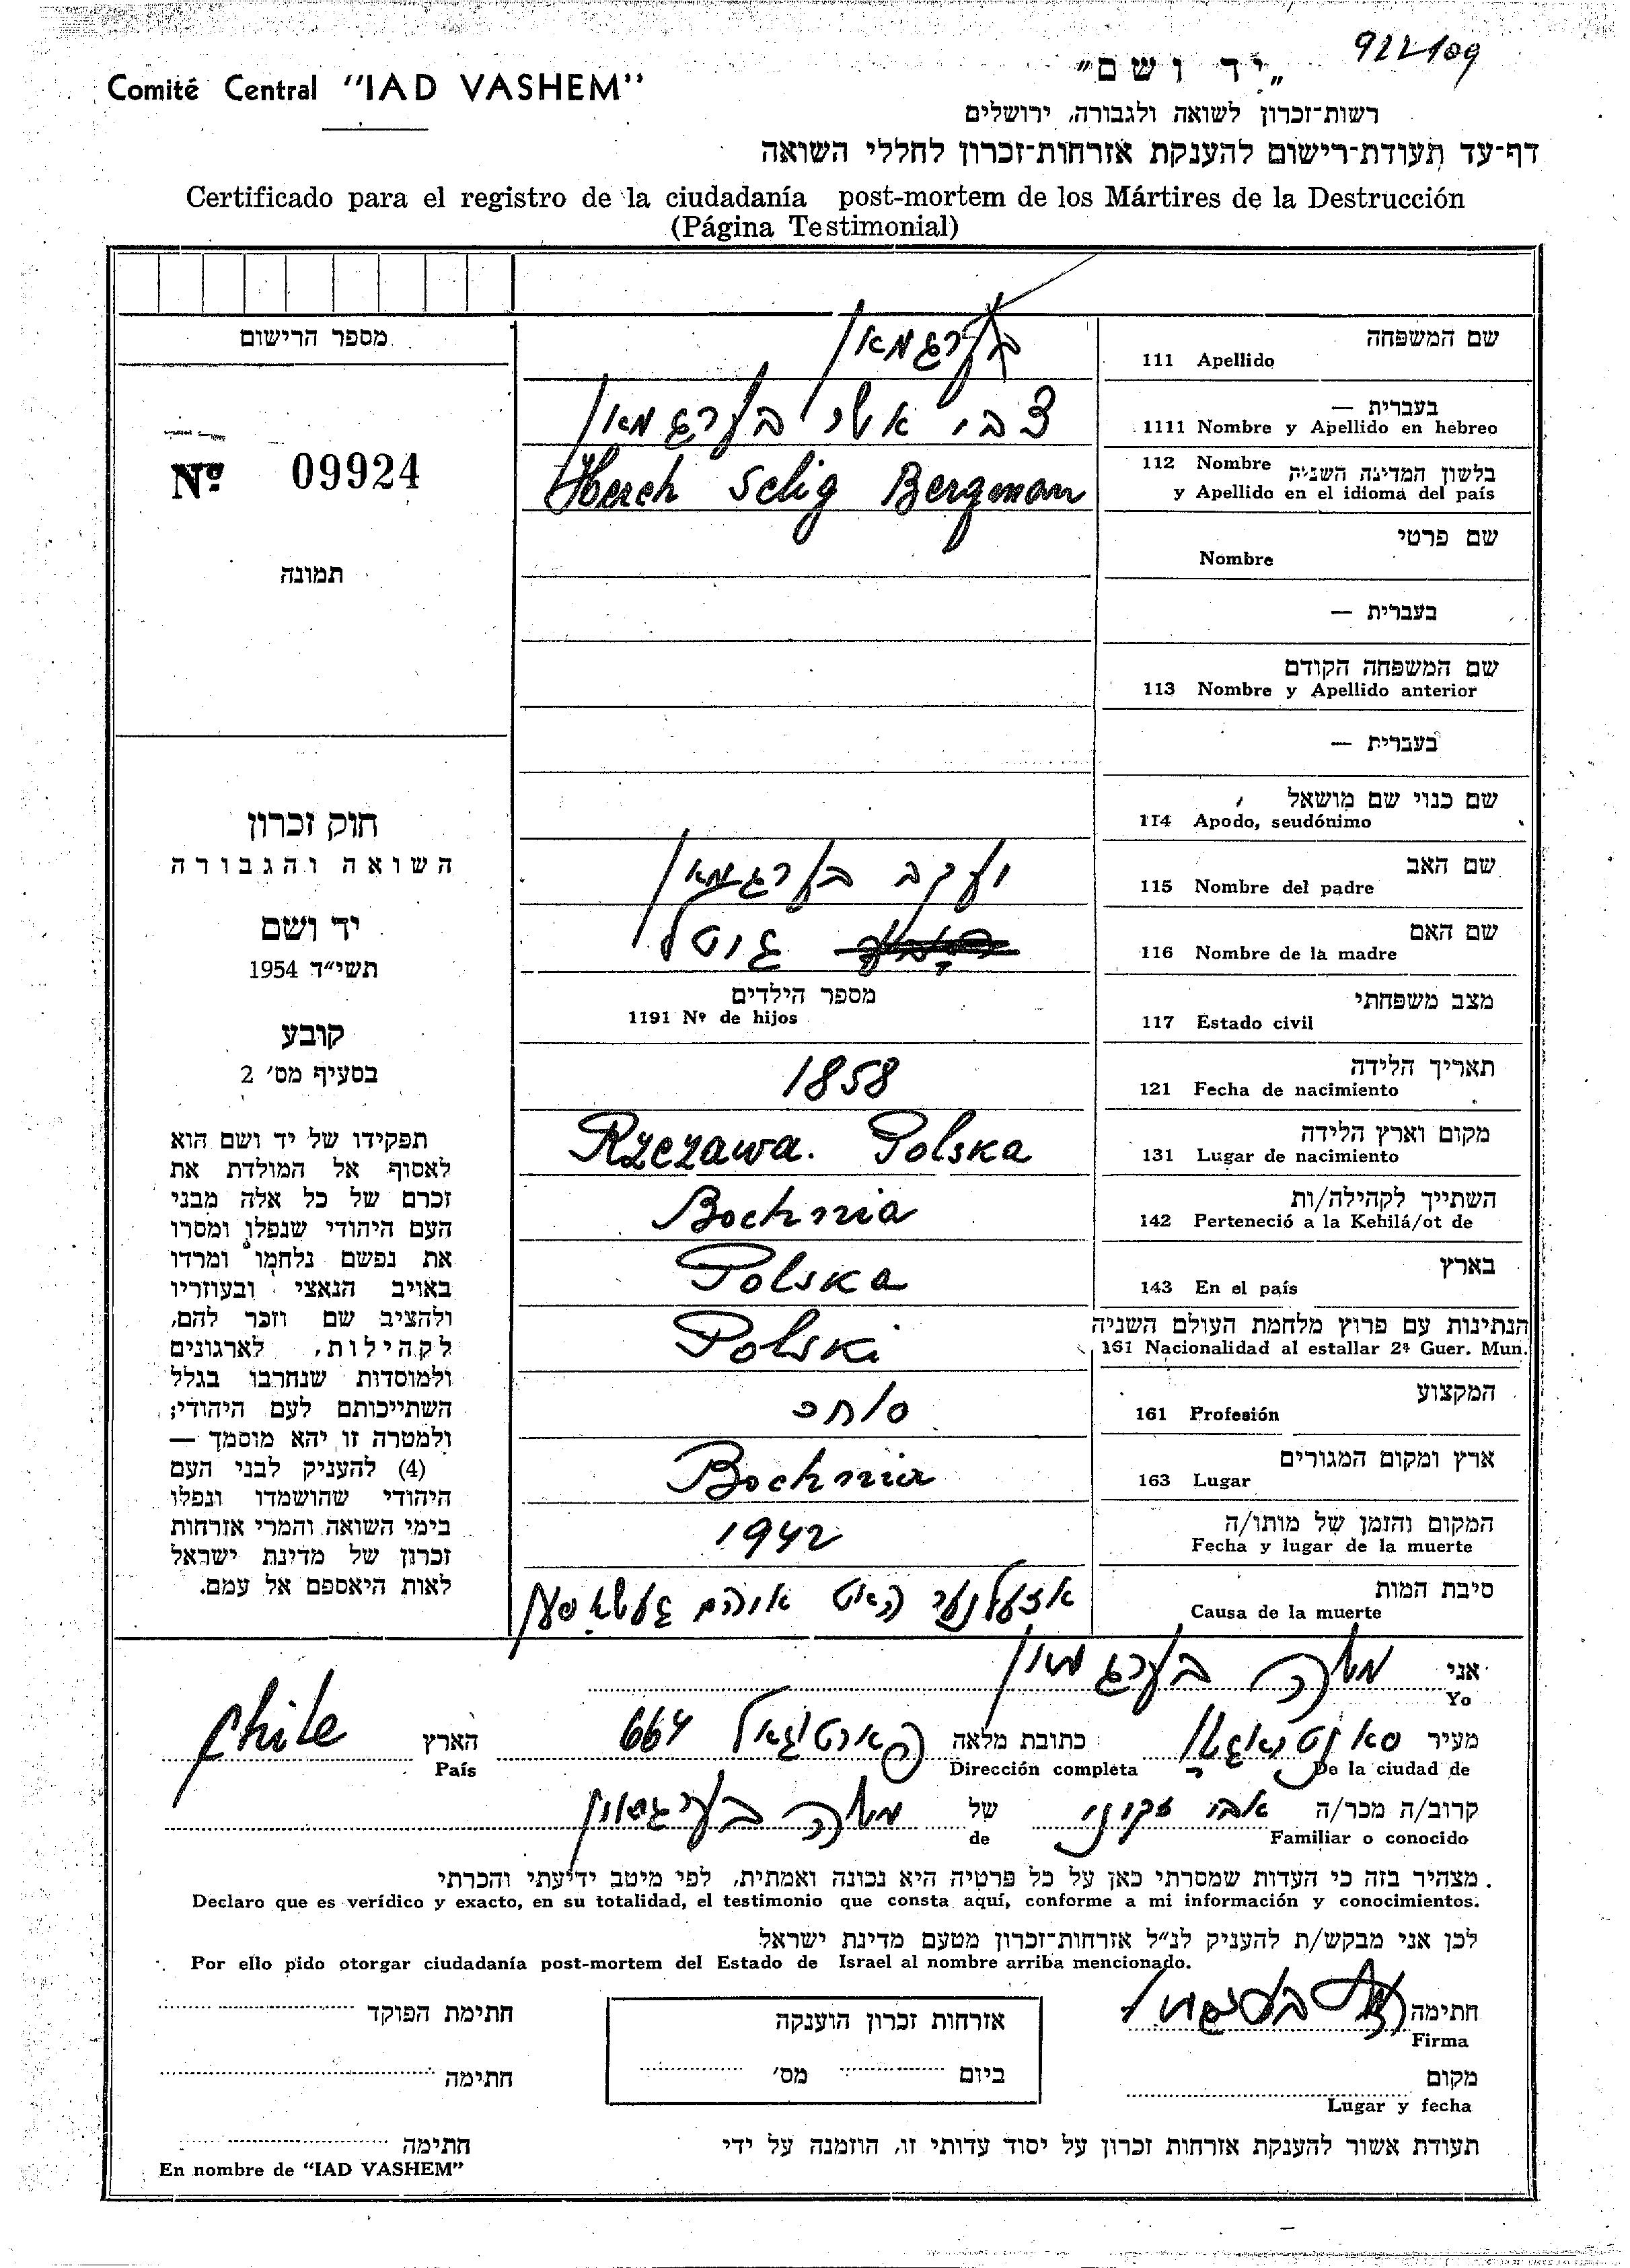 922109
Comité Central "IAD VASHEM"
„יד ושם"
רשות-זכרון לשואה ולגבורה, ירושלים
דף-עד תעודת-רישום להענקת אזרחות-זכרון לחללי השואה
Certificado para el registro de la ciudadanía post-mortem de los Mártires de la Destrucción
(Página Testimonial)
מספר הרישום
Nº 09924
תמונה
חוק זכרון
השואה והגבורה
יד ושם
תשי"ד 1954
קובע
בסעיף מס' 2
תפקידו של יד ושם הוא
לאסוף אל המולדת את
זכרם של כל אלה מבני
העם היהודי שנפלו ומסרו
את נפשם נלחמו ומרדו
באויב הנאצי ובעוזריו
ולהציב שם וזכר להם,
לקהילות, לארגונים
ולמוסדות שנחרבו בגלל
השתייכותם לעם היהודי;
ולמטרה זו יהא מוסמך —
(4) להעניק לבני העם
היהודי שהושמדו ונפלו
בימי השואה והמרי אזרחות
זכרון של מדינת ישראל
לאות היאספם אל עמם.
שם המשפחה
111 Apellido
בערגמאן
בעברית —
1111 Nombre y Apellido en hebreo
צבי אשר בערגמאן
112 Nombre בלשון המדינה השניה
y Apellido en el idioma del país
Hersch Selig Bergman
שם פרטי
Nombre
בעברית —
שם המשפחה הקודם
113 Nombre y Apellido anterior
בעברית —
שם כנוי שם מושאל
114 Apodo, seudónimo
שם האב
115 Nombre del padre
יעקב בערגמאן
שם האם
116 Nombre de la madre
גיטל
מצב משפחתי
117 Estado civil
מספר הילדים
1191 Nº de hijos
תאריך הלידה
121 Fecha de nacimiento
1858
מקום וארץ הלידה
131 Lugar de nacimiento
Rzezawa. Polska
השתייך לקהילה/ות
142 Perteneció a la Kehilá/ot de
Bochnia
בארץ
143 En el país
Polska
הנתינות עם פרוץ מלחמת העולם השניה
161 Nacionalidad al estallar 2ª Guer. Mun.
Polski
המקצוע
161 Profesión
סוחר
ארץ ומקום המגורים
163 Lugar
Bochnia
המקום והזמן של מותו/ה
Fecha y lugar de la muerte
1942
סיבת המות
Causa de la muerte
האט איהם
אני משה בערגמאן
Yo
מעיר סאנטיאגא כתובת מלאה פארטוגאל 664 הארץ Chile
De la ciudad de Dirección completa País
קרוב/ה מכר/ה אבי זקוני של משה בערגמאן
Familiar o conocido de
מצהיר בזה כי העדות שמסרתי כאן על כל פרטיה היא נכונה ואמתית, לפי מיטב ידיעתי והכרתי.
Declaro que es verídico y exacto, en su totalidad, el testimonio que consta aquí, conforme a mi información y conocimientos.
לכן אני מבקש/ת להעניק לנ"ל אזרחות-זכרון מטעם מדינת ישראל
Por ello pido otorgar ciudadanía post-mortem del Estado de Israel al nombre arriba mencionado.
חתימה
Firma
אזרחות זכרון הוענקה
ביום מס'
חתימת הפוקד
חתימה
מקום
Lugar y fecha
תעודת אשור להענקת אזרחות זכרון על יסוד עדותי זו, הוזמנה על ידי
חתימה
En nombre de "IAD VASHEM"